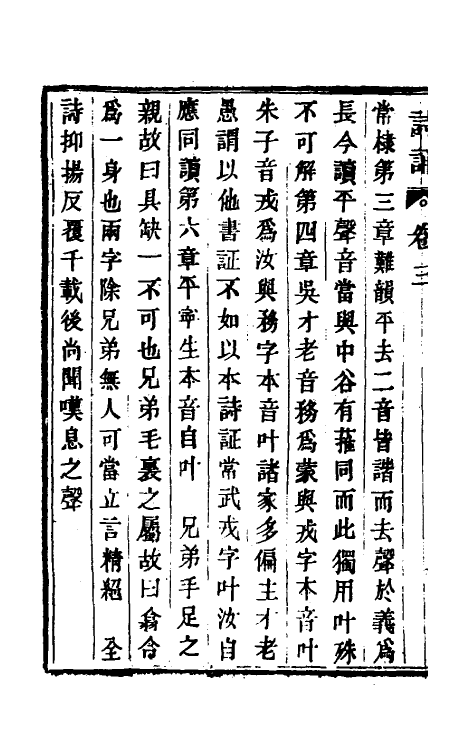 詩誦 卷三
常棣第三章難韻平去二音皆諧而去聲於義爲
長今讀平聲音當與中谷有蓷同而此獨用叶殊
不可解第四章吳才老音務爲蒙與戎字本音叶
朱子音戎爲汝與務字本音叶諸家多偏主才老
愚謂以他書証不如以本詩証常武戎字叶汝自
應同讀第六章平寧生本音自叶　兄弟手足之
親故曰具缺一不可也兄弟毛裏之屬故曰翕合
爲一身也兩字除兄弟無人可當立言精絕　全
詩抑揚反覆千載後尚聞嘆息之聲